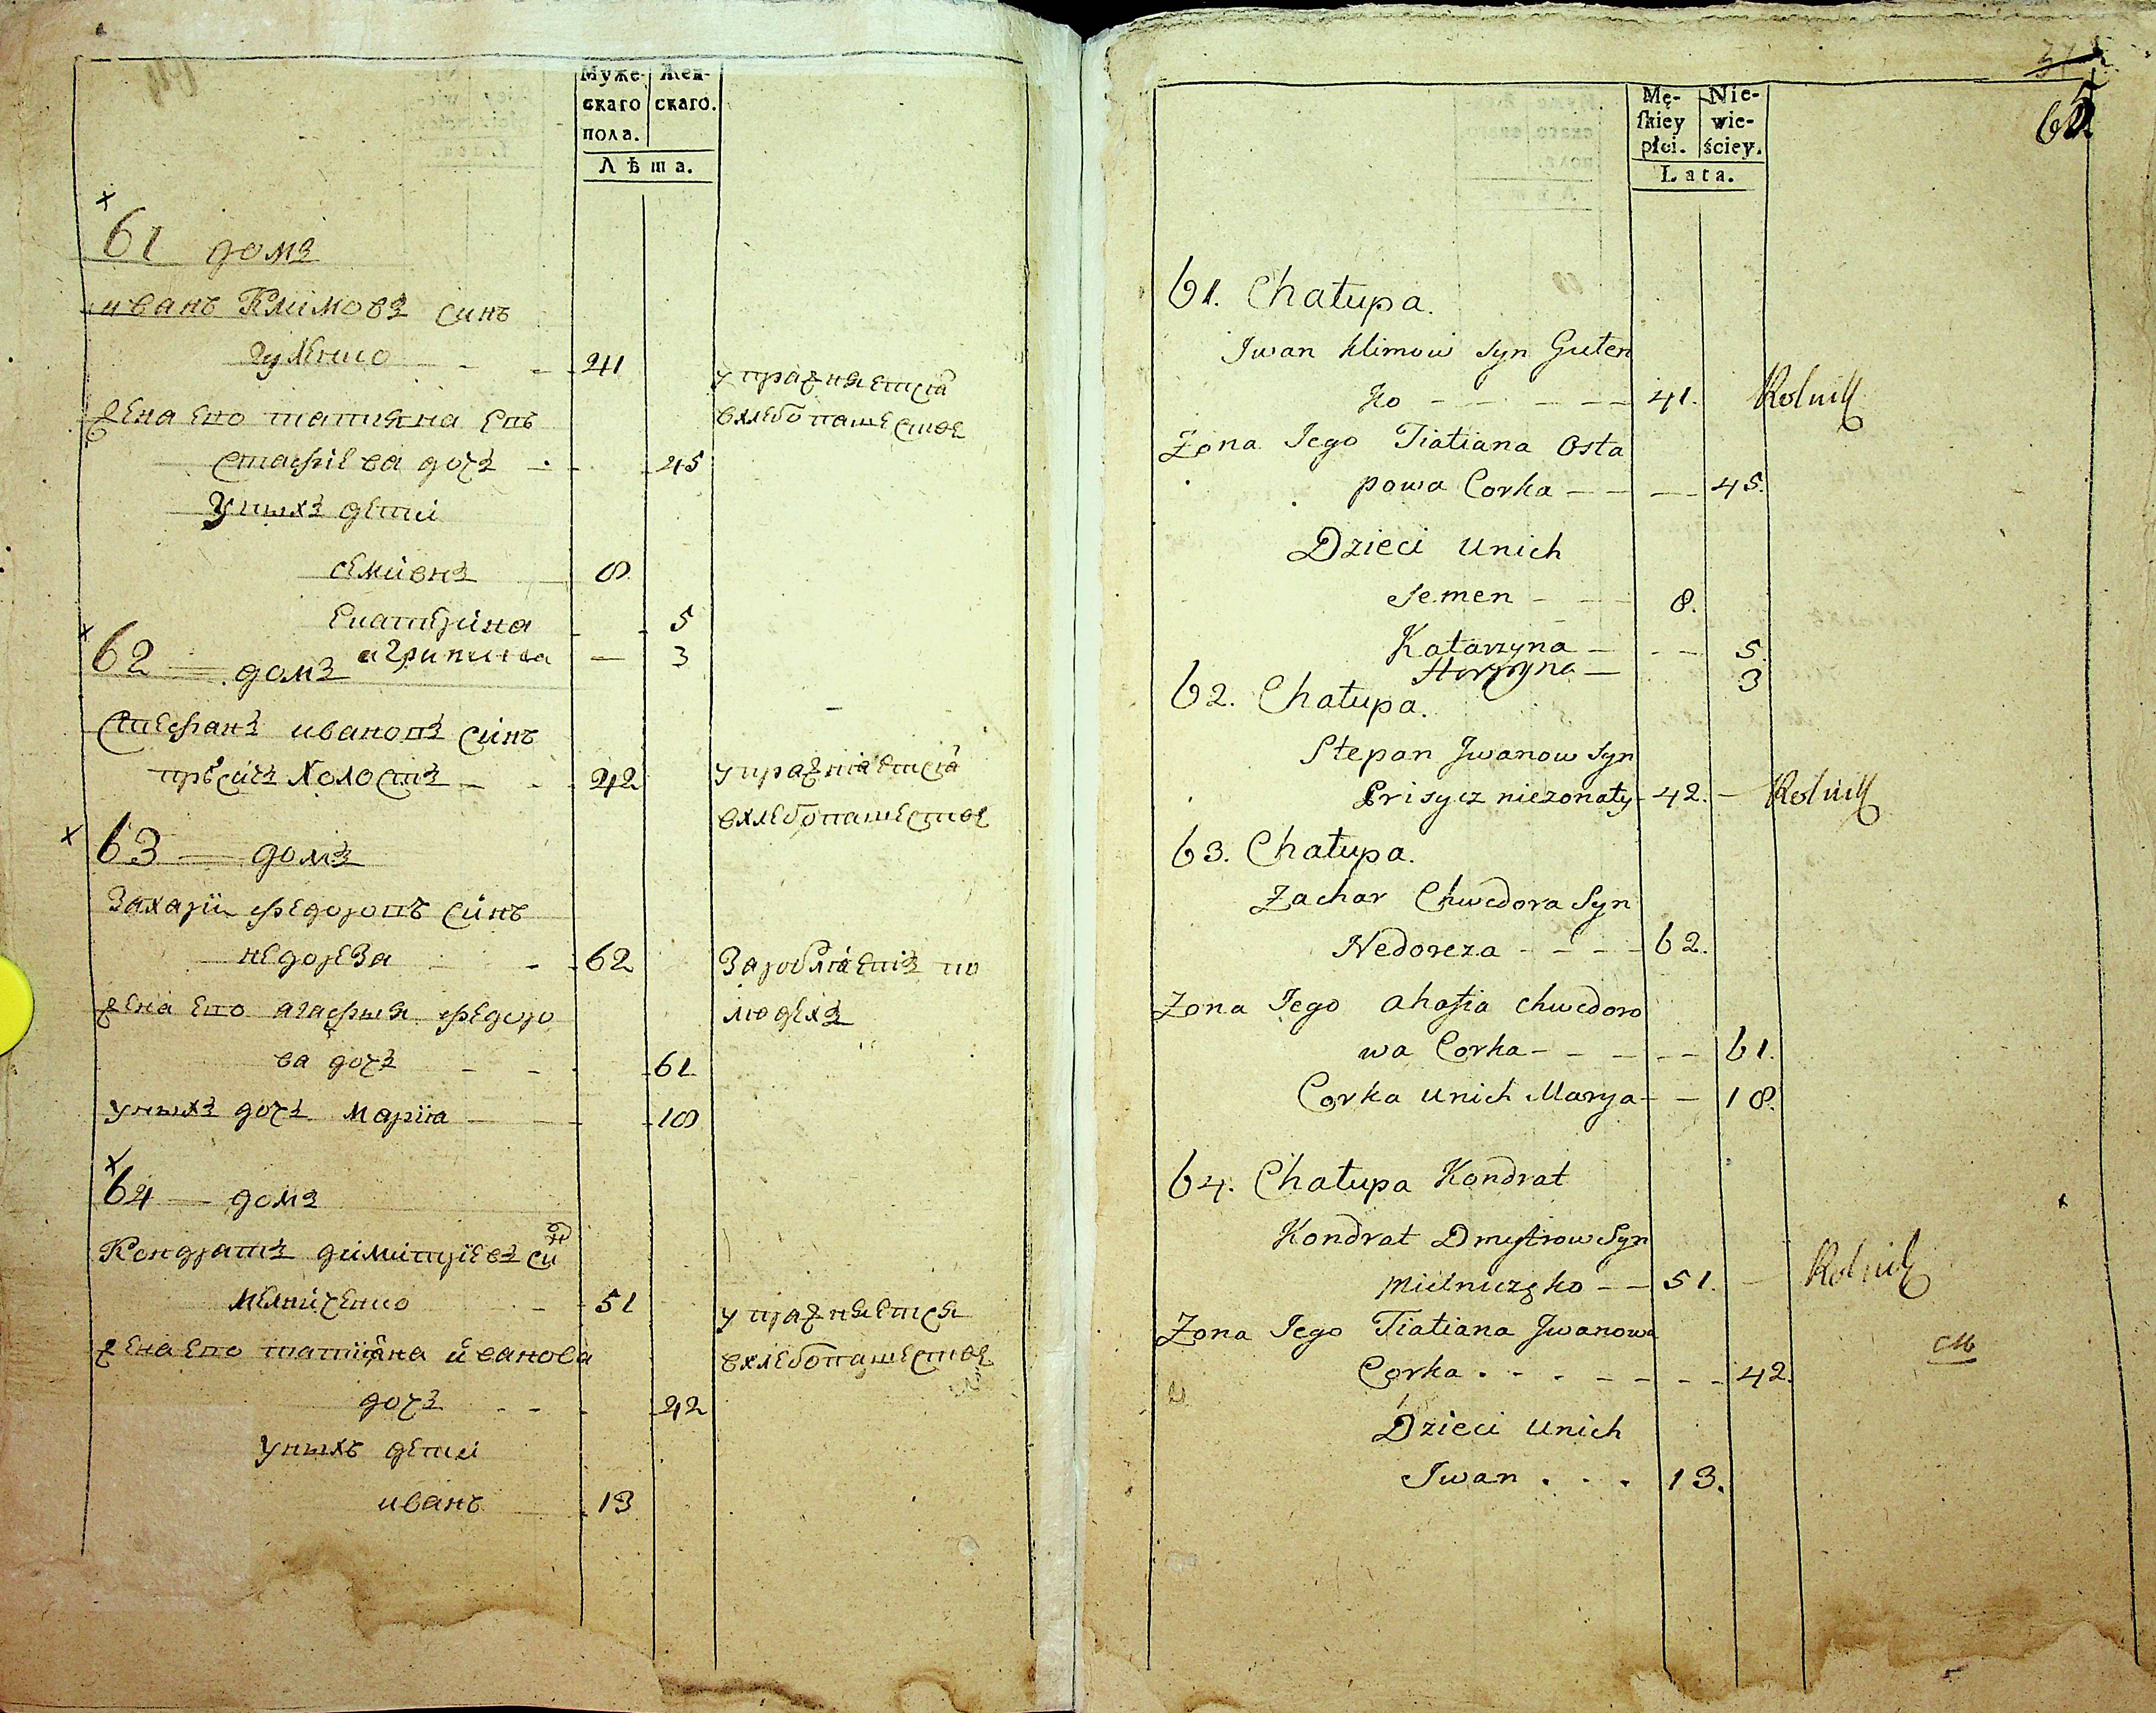 Муже- Жен-
скаго скаго.
пола.
Лѣта.
61 домъ
иванъ Климовъ синъ
гуленко 41
упражняется
жена его татияна ев
вхлебопашестве
стафиева дочъ 45
унихъ дети
семионъ 8
Екатерина 5
агрипина 3
62 домъ
Стефанъ ивановъ синъ
присичъ холостъ 42 упражняется
вхлебопашестве
63 домъ
Захарїи федоровъ синъ
недореза 62 Заробляетъ по
жена его агафия федоро людехъ
ва дочъ 61
унихъ дочъ марїя 18
64 домъ
Кондратъ димитрїевъ синъ
мелниченко 51 упражняется
жена его татїяна иванова вхлебопашестве
дочъ 42
унихъ дети
иванъ 13
31
65.
Mę- Nie-
ſkiey wie-
płci. ściey.
Lata.
61. Chałupa.
Jwan Klimow Syn Gulen
ko 41. Rolnik
Zona Jego Tiatiana Osta
powa Corka 45.
Dzieci unich
Semen 8.
Katarzyna 5.
3
62. Chałupa.
Stepan Jwanow Syn
Prisycz niezonaty 42. Rolnik
63. Chałupa.
Zachar Chwedora Syn
Nedoreza 62.
Zona Jego Ahafia Chwedoro
wa Corka 61.
Corka unich Marya 18.
64. Chałupa Kondrat
Kondrat Dmytrow Syn
Mielniczęko 51. Rolnik
Zona Jego Tiatiana Jwanowa
Corka 42.
Dzieci unich
Jwan 13.